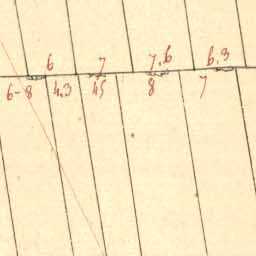 6 7 7,6 6,9
6-8 4,3 45 8 7